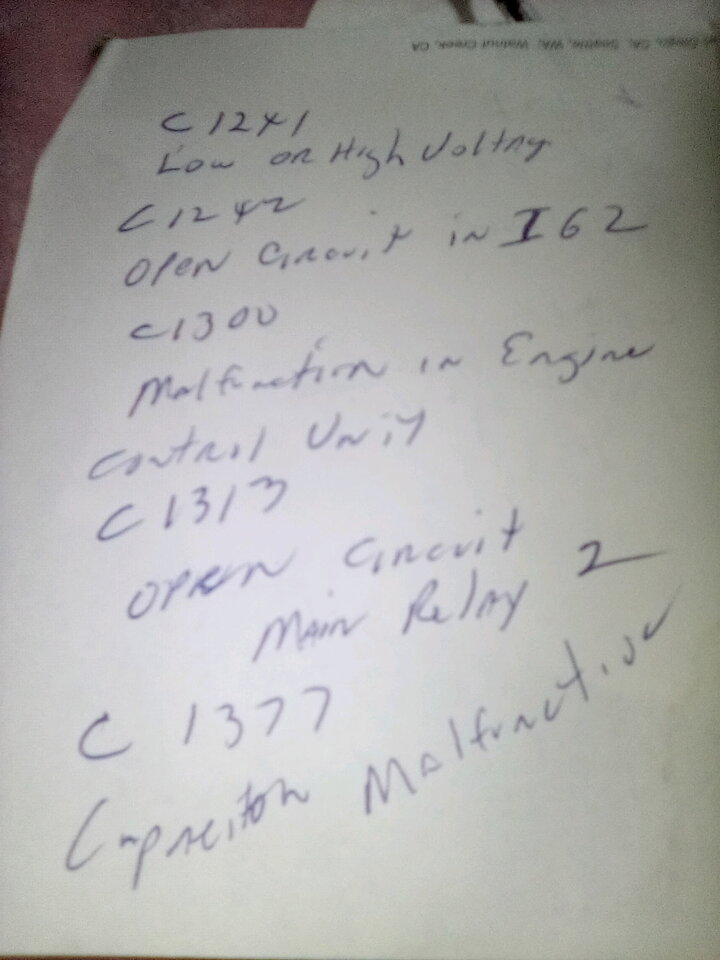 Diego, CA, Seattle, WA, Walnut Creek, CA
C1241
Low or High Voltag
C1242
Open Circuit in IG2
C1300
Malfunction in Engine
Control Unit
C1313
Open Circuit
Main Relay 2
C 1377
Capacitor Malfunction